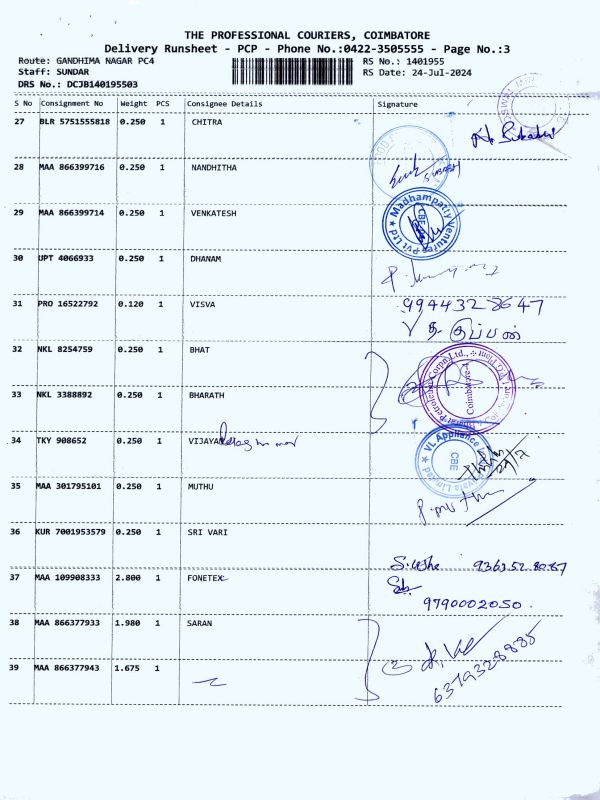 THE PROFESSIONAL COURIERS, COIMBATORE
Delivery Runsheet - PCP - Phone No.:0422-3505555 - Page No.:3
Route: GANDHIMA NAGAR PC4
RS No.: 1401955
Staff: SUNDAR
RS Date: 24-Jul-2024
DRS No.: DCJB140195503
S No Consignment No Weight PCS Consignee Details Signature
27 BLR 5751555818 0.250 1 CHITRA
28 MAA 866399716 0.250 1 NANDHITHA
29 MAA 866399714 0.250 1 VENKATESH
Madhampatty Ventures Pvt Ltd ★
CBE
30 UPT 4066933 0.250 1 DHANAM
31 PRO 16522792 0.120 1 VISVA
9944328647
32 NKL 8254759 0.250 1 BHAT
Coimbatore
33 NKL 3388892 0.250 1 BHARATH
34 TKY 908652 0.250 1 VIJAYAN
VL Appliance Private Limited ★
CBE
35 MAA 301795101 0.250 1 MUTHU
P.muthu
36 KUR 7001953579 0.250 1 SRI VARI
S.usha
37 MAA 109908333 2.800 1 FONETEX
9790002050
38 MAA 866377933 1.980 1 SARAN
39 MAA 866377943 1.675 1